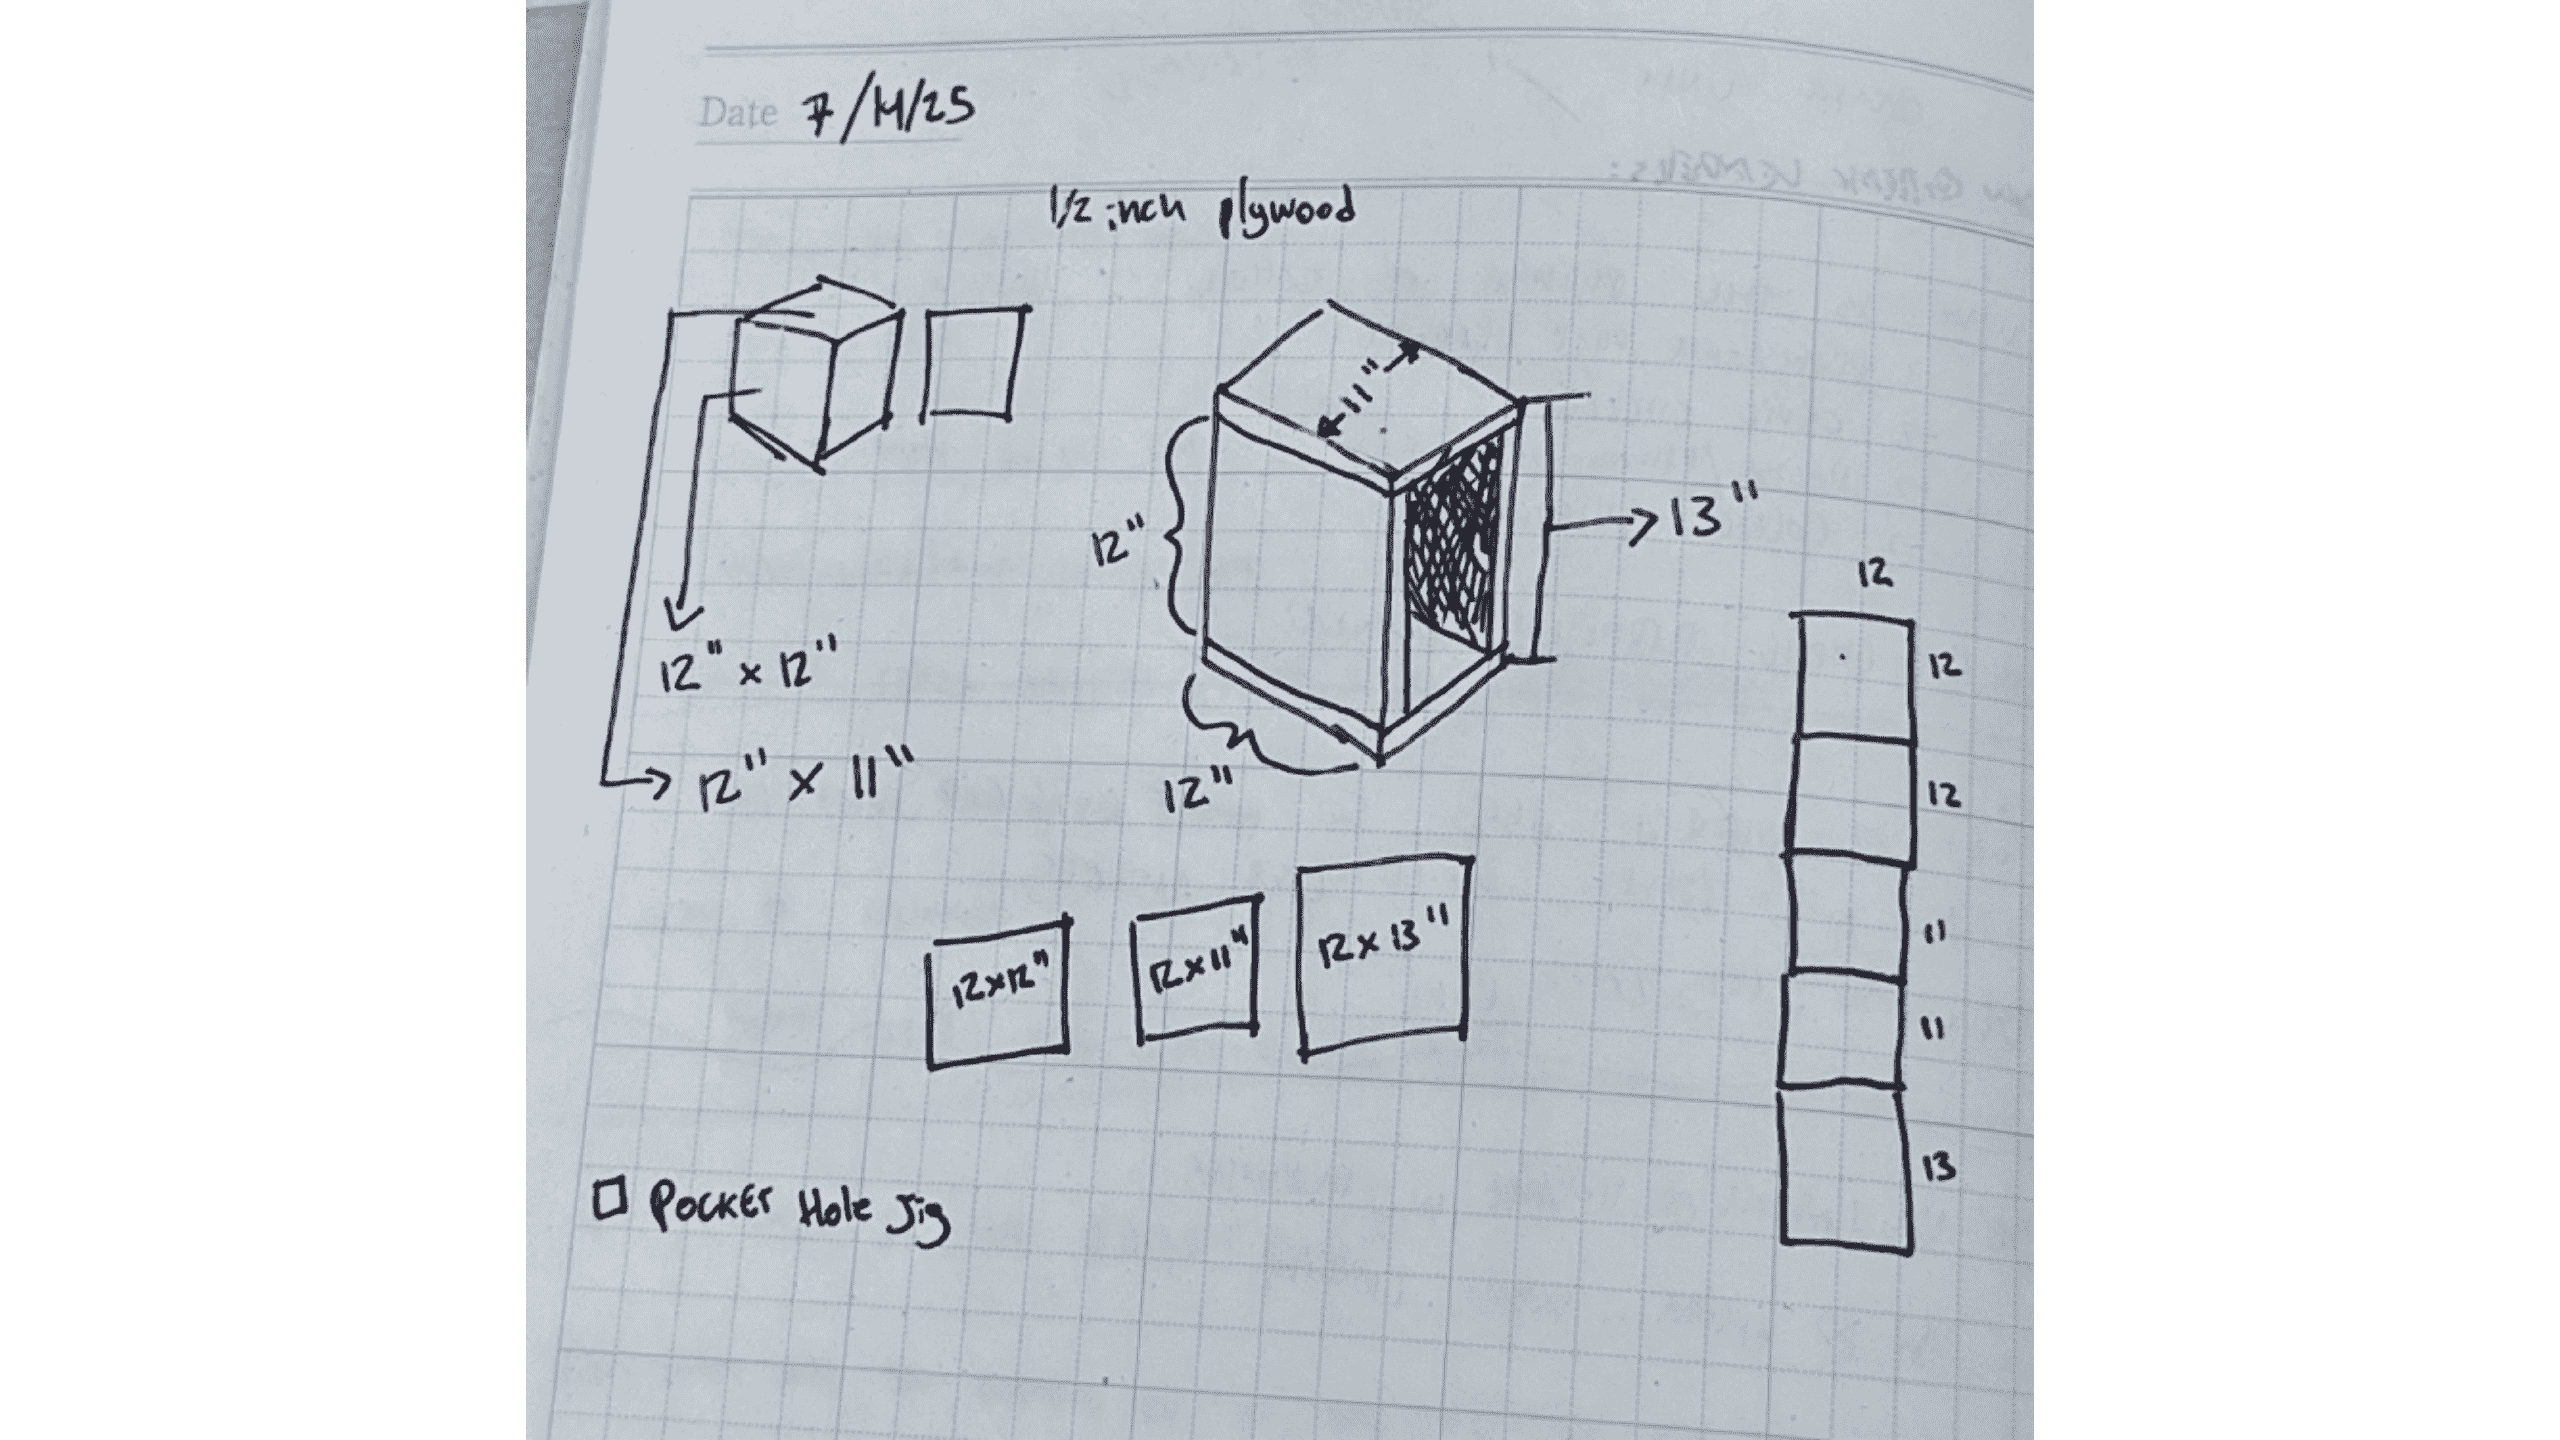 Date 7/14/25
1/2 inch plywood
11"
12"
13"
12" x 12"
12" x 11"
12"
12
12
12
11
11
13
12x12"
12x11"
12x13"
Pocket Hole Jig